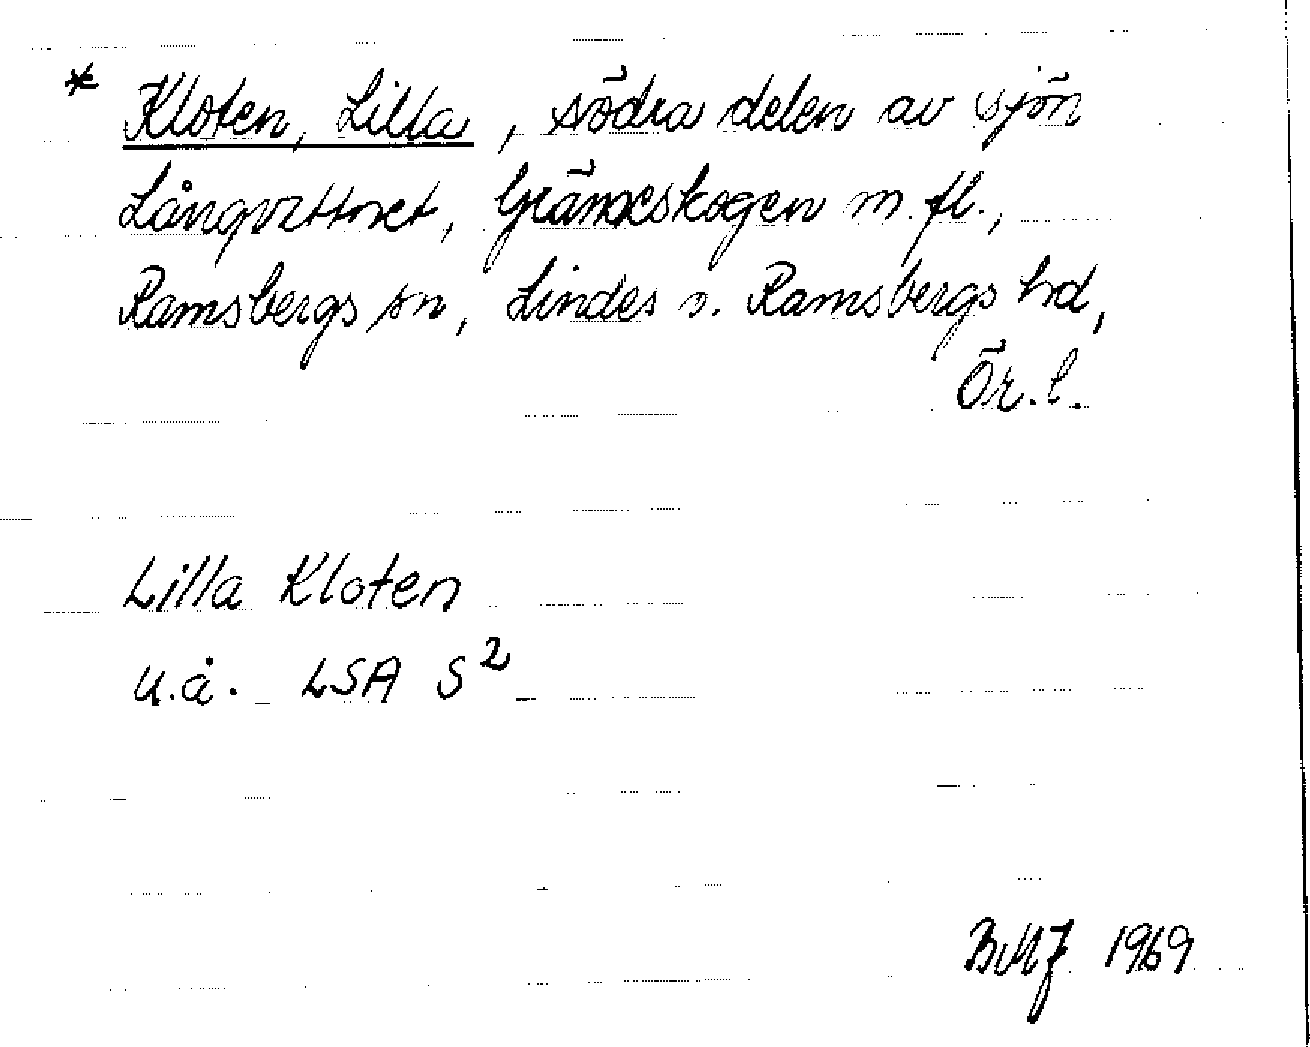 * Kloten, Lilla, södra delen av sjön
Långvattnet, Gränsskogen m. fl.,
Ramsbergs sn, Lindes o. Ramsbergs hd,
Ör. l.
Lilla Kloten
u.å. LSA S²
BMJ 1969